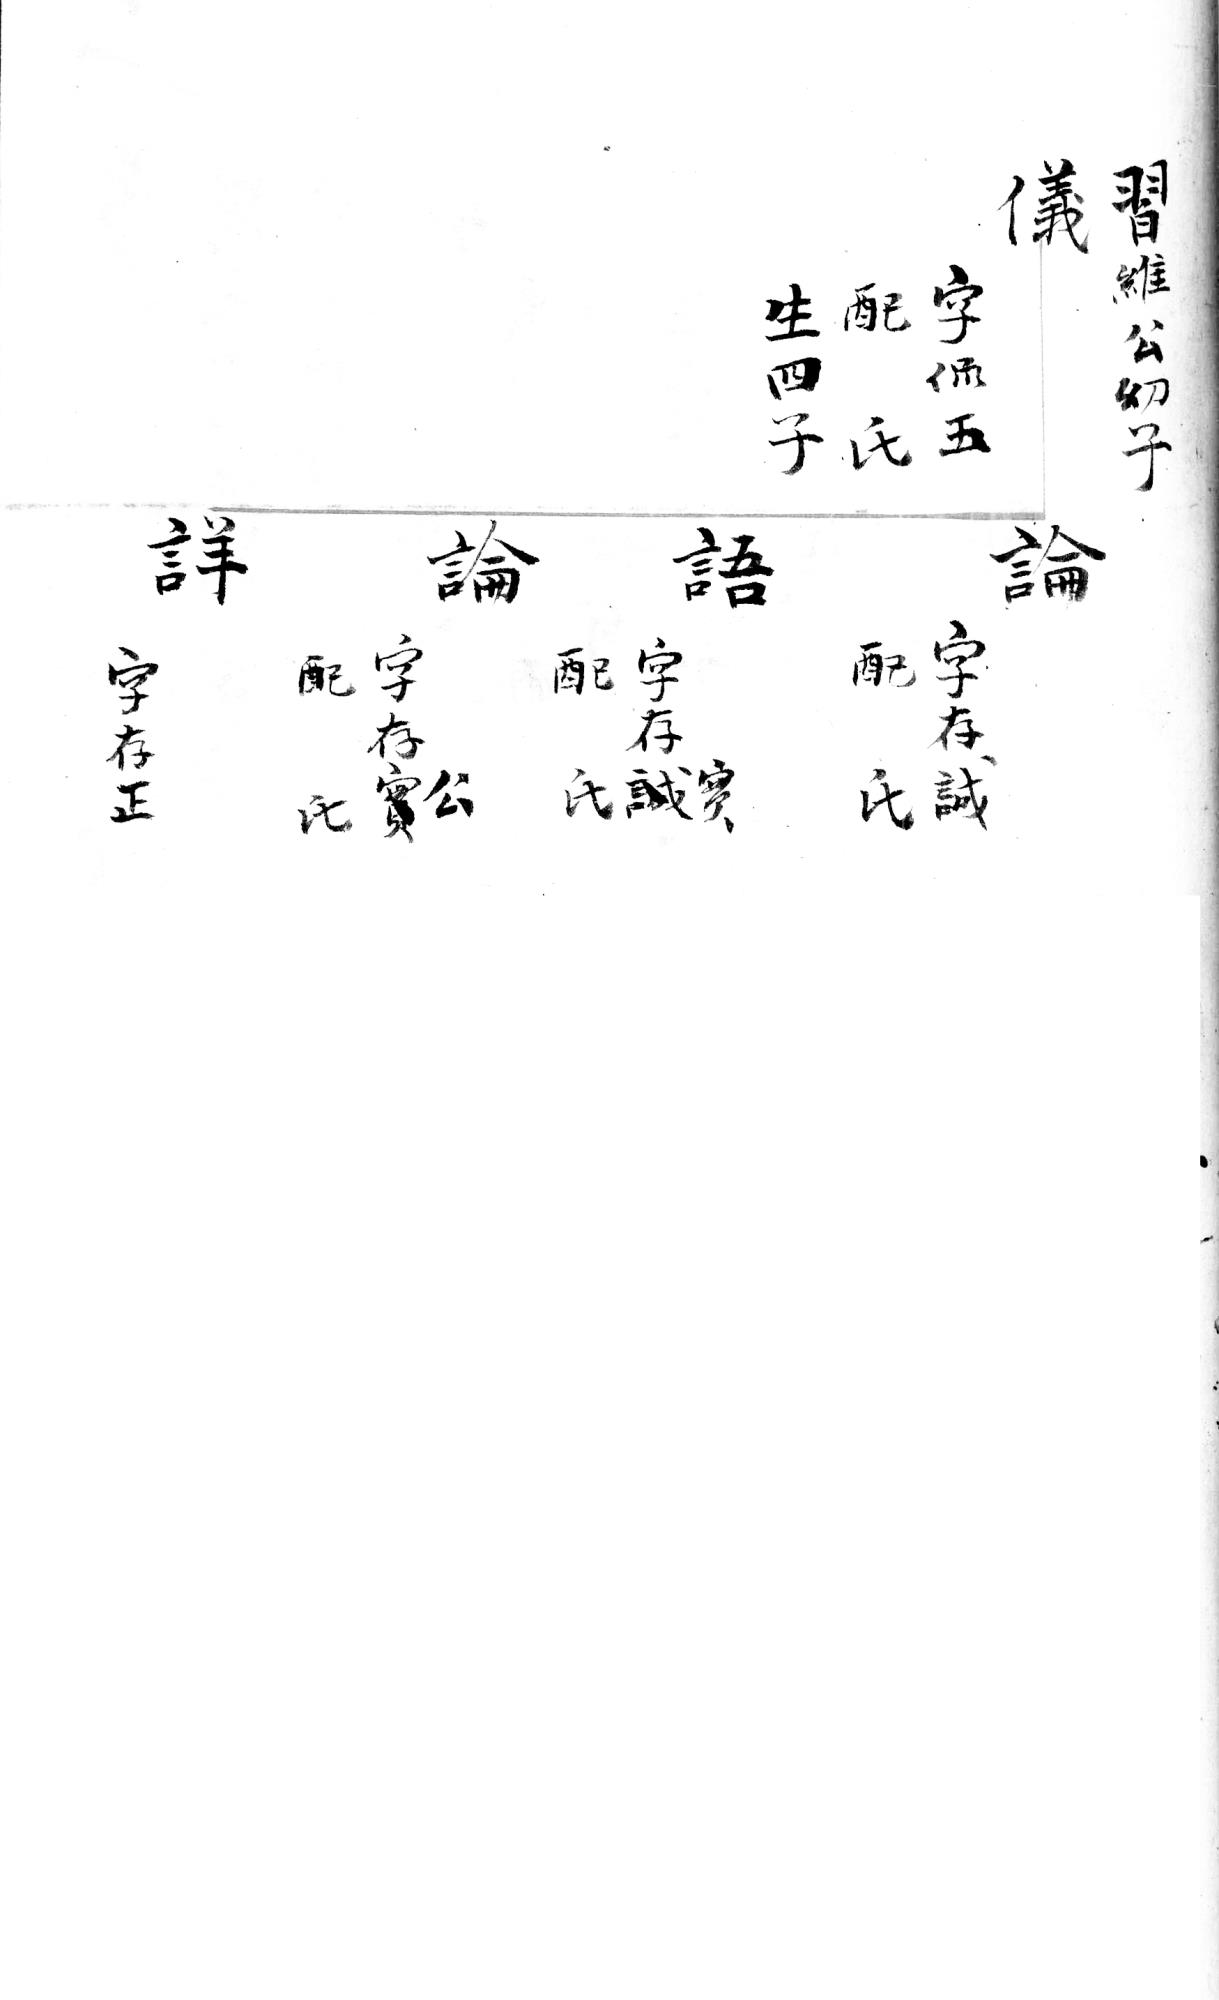 習維公幼子
儀
字佩五
配 氏
生四子
論
字存誠
配 氏
語
字存誠實
配 氏
論
字存實公
配 氏
詳
字存正